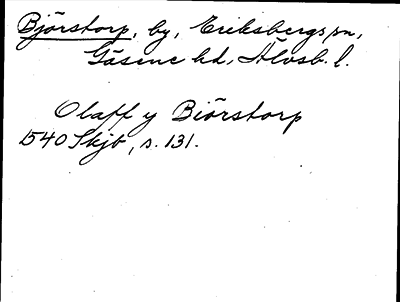 Björstorp, by, Eriksbergs sn,
Gäsene hd, Älvsb. l.
Olaff y Biörstorp
1540 Skjb, s. 131.